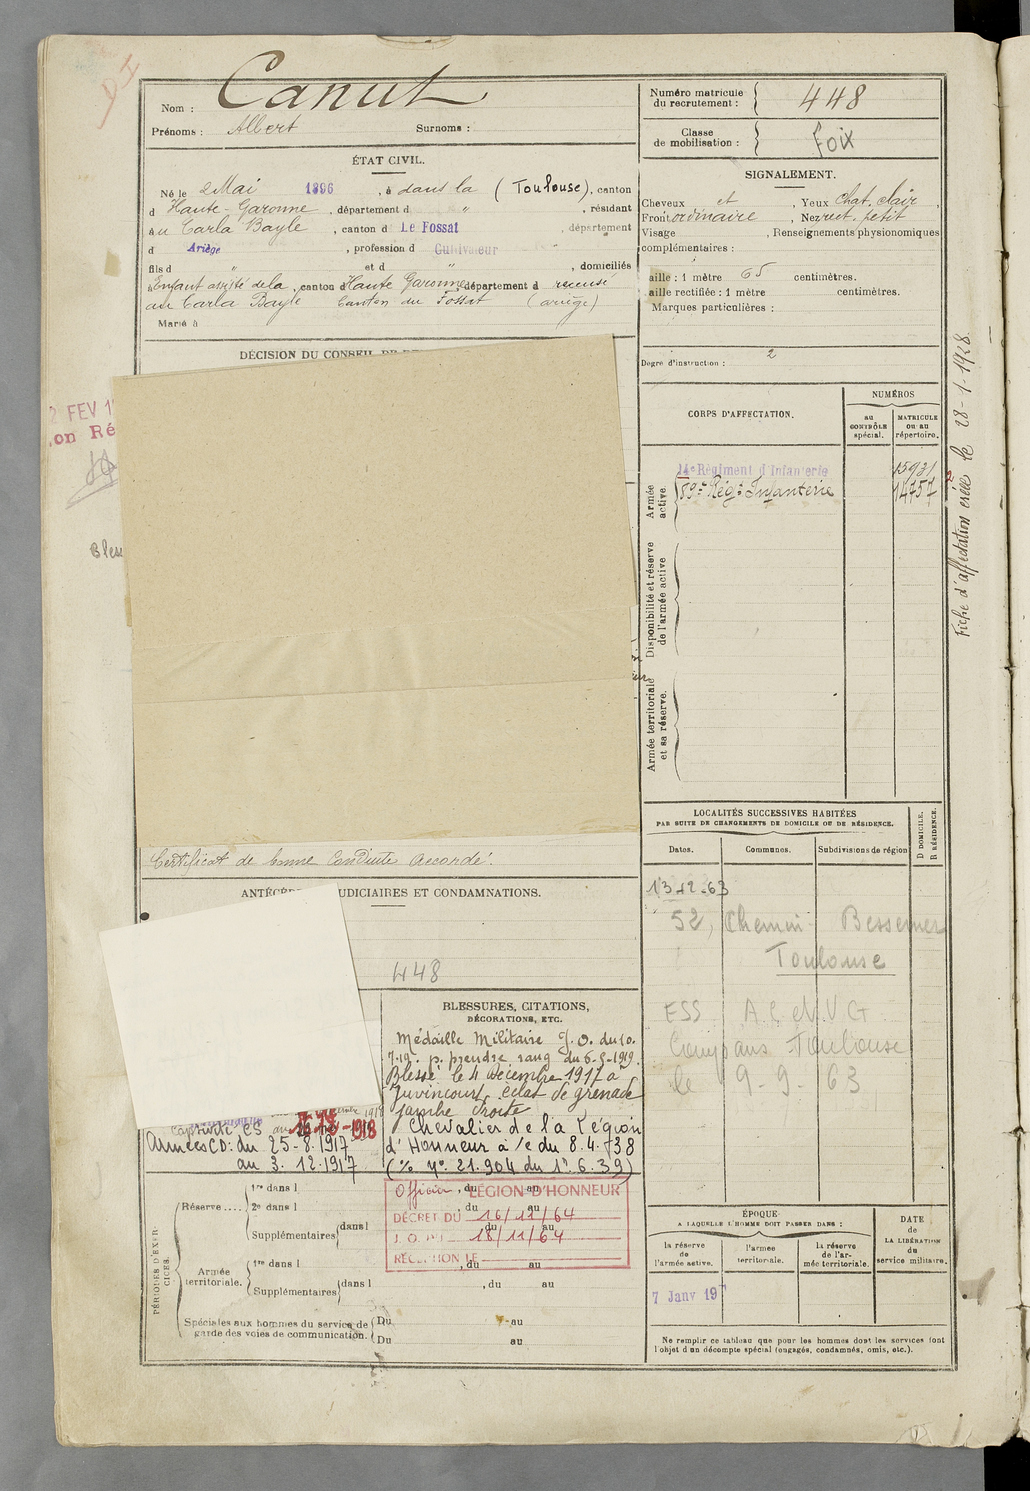 Nom : Canut
Prénoms : Albert Surnoms :
Numéro matricule du recrutement : 448
Classe de mobilisation : Foix
ÉTAT CIVIL.
Né le 2 Mai 1896, à dans la (Toulouse), canton
d Haute-Garonne, département d " , résidant
au Carla Bayle, canton d Le Fossat, département
d Ariège, profession d Cultivateur
fils d " et d " , domiciliés
Enfant assisté de la, canton d Haute Garonne, département d recensé
au Carla Bayle Canton du Fossat (ariège)
Marié à
SIGNALEMENT.
Cheveux et Yeux chat. clair,
Front ordinaire, Nez rect. petit
Visage , Renseignements physionomiques
complémentaires :
aille : 1 mètre 65 centimètres.
aille rectifiée : 1 mètre centimètres.
Marques particulières :
Degré d'instruction : 2
DÉCISION DU CONSEIL DE
2 FEV 1
on Ré
Bles
CORPS D'AFFECTATION.
NUMÉROS
au CONTRÔLE spécial.
MATRICULE ou au répertoire.
Armée active
14e Régiment d'Infanterie 15931
89e Régt Infanterie 14757
Disponibilité et réserve de l'armée active
Armée territoriale et sa réserve.
Fiche d'affectation créée le 28-1-1928
Certificat de bonne Conduite Accordé.
ANTÉCÉ UDICIAIRES ET CONDAMNATIONS.
448
LOCALITÉS SUCCESSIVES HABITÉES
PAR SUITE DE CHANGEMENTS DE DOMICILE OU DE RÉSIDENCE.
Dates. Communes. Subdivisions de région
D DOMICILE. R RÉSIDENCE.
13-12-63
52, Chemin Bessemer
Toulouse
ESS A.C. et V G
Compans Toulouse
le 9-9-63
BLESSURES, CITATIONS,
DÉCORATIONS, ETC.
Médaille Militaire J.O. du 10.
7.19. p. prendre rang du 6-5-1919.
Blessé le 4 décembre 1917 à
Juvincourt, éclat de grenade
jambe droite
Chevalier de la Légion
d'Honneur à/c du 8.4.38
(% No 21.904 du 1r. 6.39)
Captivité CS au
Armées CD: du 25-8-1917
au 3.12.1917
Officier LÉGION D'HONNEUR
DÉCRET DU 16/11/64
J.O. DU 18/11/64
RÉCEPTION LE
PÉRIODES D'EXERCICES.
Réserve....
1re dans l , du au
2e dans l , du au
Supplémentaires dans l du au
Armée territoriale.
1re dans l , du au
Supplémentaires dans l , du au
Spéciales aux hommes du service de garde des voies de communication.
Du au
Du au
ÉPOQUE
A LAQUELLE L'HOMME DOIT PASSER DANS :
la réserve de l'armée active.
l'armée territoriale.
la réserve de l'armée territoriale.
DATE de LA LIBÉRATION du service militaire.
7 Janv 19
Ne remplir ce tableau que pour les hommes dont les services font
l'objet d'un décompte spécial (engagés, condamnés, omis, etc.).